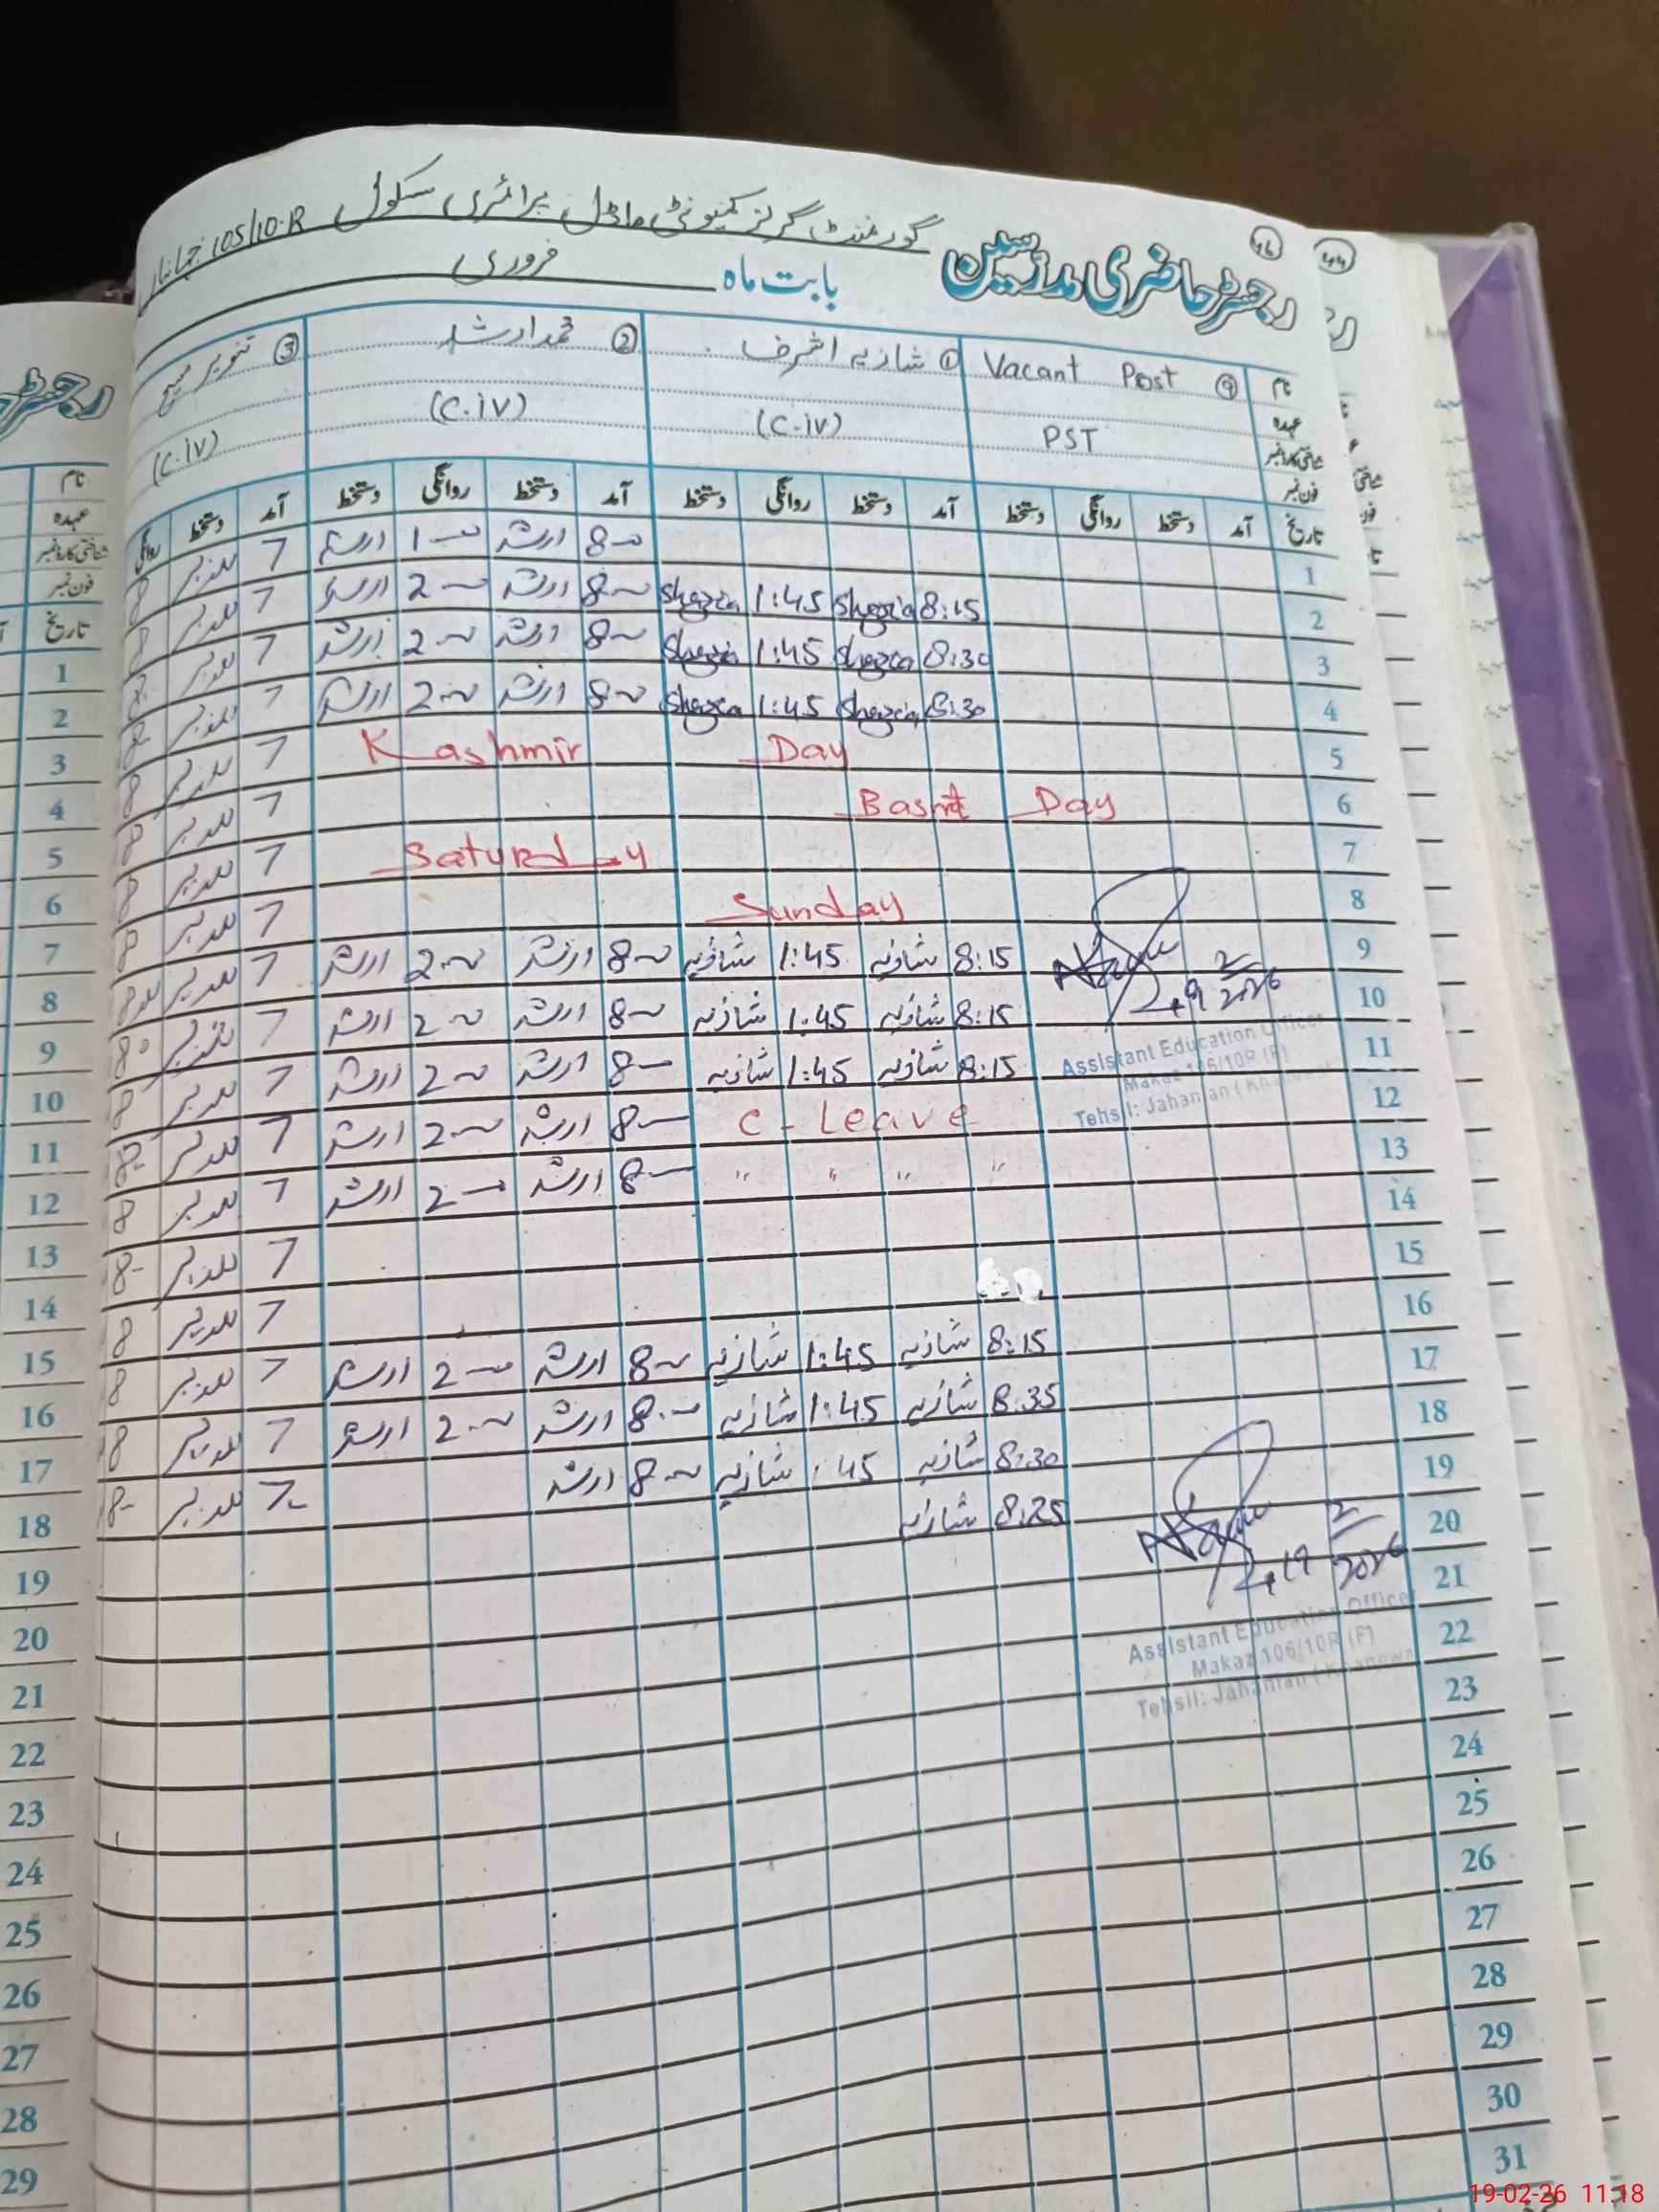 44
46
رجسٹر حاضری مدرسین گورنمنٹ گرلز کمیونٹی ماڈل پرائمری سکول 105/10-R جہانیاں
بابت ماہ فروری
نام Vacant Post ④ ① شازیہ اشرف ② محمد ارشد ③ تنویر مسیح
عہدہ PST (C.iv) (C.iv) (C.iv)
شناختی کارڈ نمبر
فون نمبر
تاریخ آمد دستخط روانگی دستخط آمد دستخط روانگی دستخط آمد دستخط روانگی دستخط آمد دستخط روانگی
1 8 ارشد 1 ارشد 7 8
2 8:15 Shazia 1:45 Shazia 8 ارشد 2 ارشد 7 8
3 8:30 Shazia 1:45 Shazia 8 ارشد 2 ارشد 7 8
4 8:30 Shazia 1:45 Shazia 8 ارشد 2 ارشد 7 8
5 Kashmir Day 7 8
6 Basnt Day 7 8
7 Saturday 7 8
8 Sunday 7 8
9 8:15 شازیہ 1:45 شازیہ 8 ارشد 2 ارشد 7 8
10 8:15 شازیہ 1:45 شازیہ 8 ارشد 2 ارشد 7 8
11 8:15 شازیہ 1:45 شازیہ 8 ارشد 2 ارشد 7 8
12 C - Leave 8 ارشد 2 ارشد 7 8
13 " " " " 8 ارشد 2 ارشد 7 8
14 7 8
15 7 8
16 8:15 شازیہ 1:45 شازیہ 8 ارشد 2 ارشد 7 8
17 8:35 شازیہ 1:45 شازیہ 8 ارشد 2 ارشد 7 8
18 8:30 شازیہ 1:45 شازیہ 8 ارشد 7 8
19 8:25 شازیہ
20
21
22
23
24
25
26
27
28
29
30
31
9 2/2026
Assistant Education Officer
Makaz 106/10R (F)
Tehsil: Jahanian
19 2/2026
Assistant Education Officer
Makaz 106/10R (F)
Tehsil: Jahanian
رجسٹر
نام
عہدہ
شناختی کارڈ نمبر
فون نمبر
تاریخ
1
2
3
4
5
6
7
8
9
10
11
12
13
14
15
16
17
18
19
20
21
22
23
24
25
26
27
28
29
19-02-26 11:18